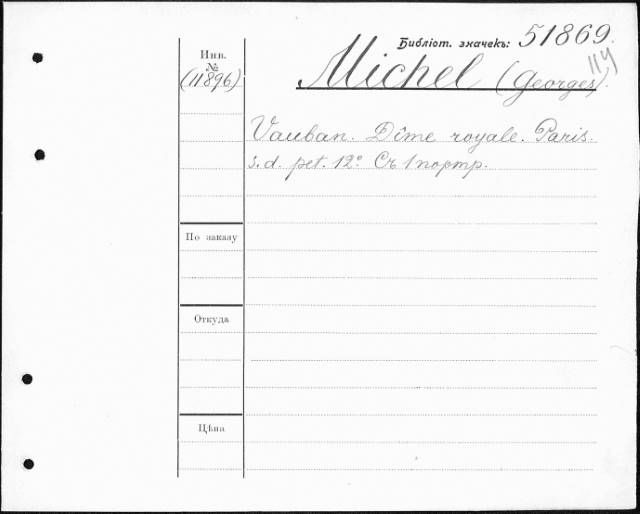 Библіот. значекъ: 51869.
114
Инв.
№
(11896)
Michel (Georges).
Vauban. Dîme royale. Paris.
s.d. pet. 12° Съ 1 портр.
По заказу
Откуда
Цѣна